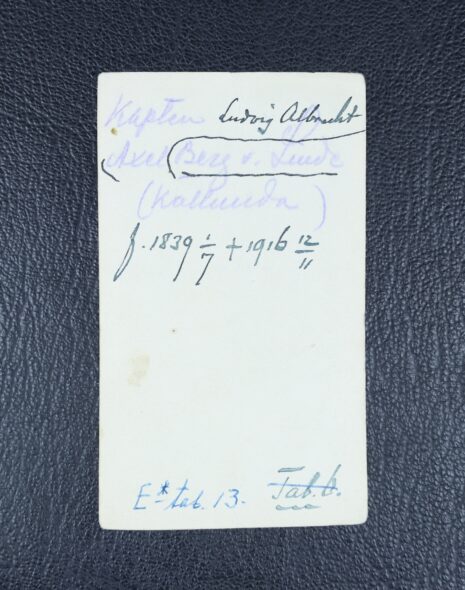 Kapten Ludvig Albrecht
Axel Berg v. Linde
(Kallunda)
f. 1839 1/7 + 1916 12/11
E* tab. 13. Tab. 6.